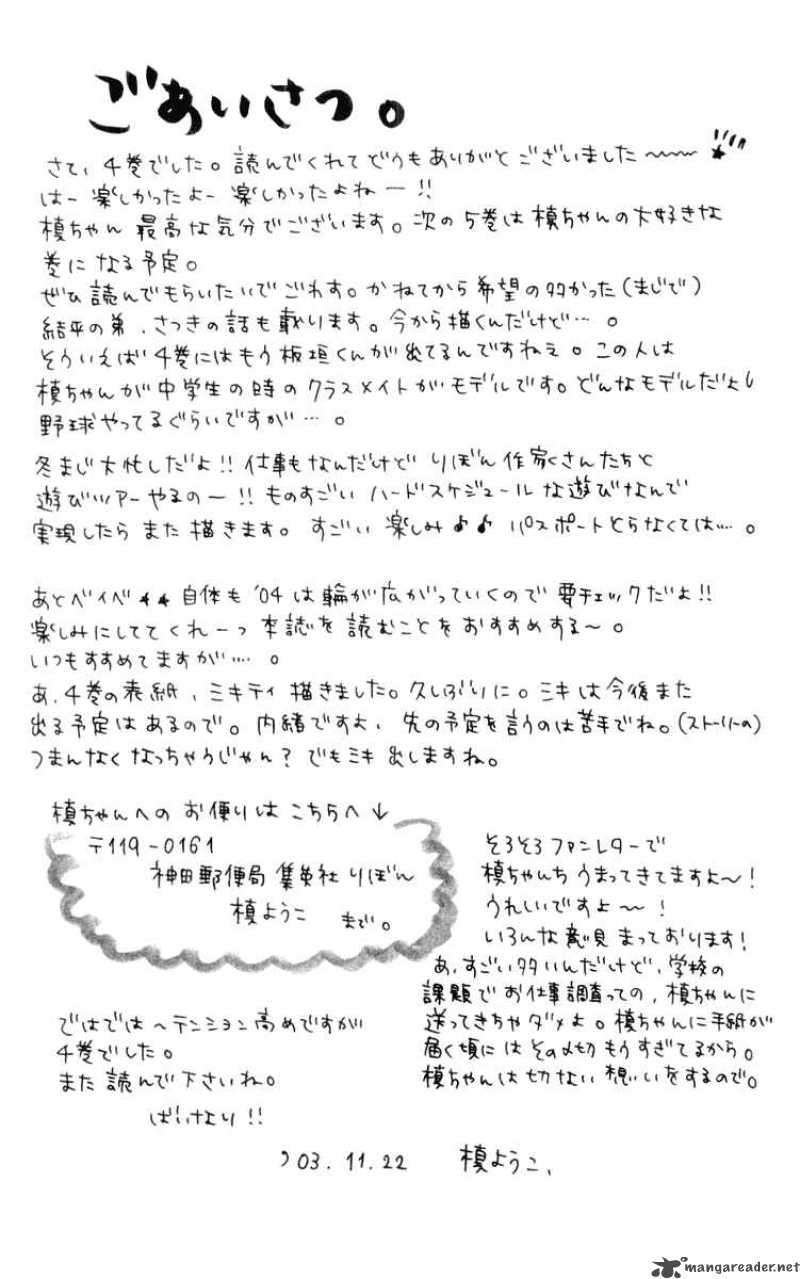 ごあいさつ。
さて、4巻でした。読んでくれてどうもありがとございました〜〜
はー楽しかったよー楽しかったよねー!!
槙ちゃん 最高な気分でございます。次の5巻は槙ちゃんの大好きな
巻に なる予定。
ぜひ読んでもらいたいでごわす。かねてから希望の多かった(まじで)
結平の弟、さつきの話も載ります。今から描くんだけど…。
そういえば4巻にはもう板垣くんが出てるんですねえ。この人は
槙ちゃんが中学生の時のクラスメイトがモデルです。どんなモデルだよ!
野球やってるぐらいですが…。
冬まじ大忙しだよ!!仕事もなんだけど りぼん作家さんたちと
遊びツアーやるのー!!ものすごいハードスケジュールな遊びなんで
実現したら また描きます。すごい楽しみ♪♪ パスポートとらなくては…。
あとベイベ★★自体も '04は輪が広がっていくので要チェックだよ!!
楽しみにしててくれーっ 本誌を読むことをおすすめする〜。
いつもすすめてますが…。
あ、4巻の表紙、ミキティ描きました。久しぶりに。ミキは今後また
出る予定はあるので。内緒ですよ、先の予定を言うのは苦手でね。(ストーリーの)
つまんなくなっちゃうじゃん?でもミキ出しますね。
槙ちゃんへの お便りは こちらへ↓
〒119-0161
神田郵便局 集英社 りぼん
槙ようこ まで。
そろそろファンレターで
槙ちゃんち うまってきてますよ〜!
うれいいですよ〜!
いろんな意見 まっております!
あ、すごい多いんだけど、学校の
課題でお仕事調査っての、槙ちゃんに
送ってきちゃダメよ。槙ちゃんに手紙が
届く頃には その〆切もうすぎてるから。
槙ちゃんは切ない想いをするので。
ではではヘテンション高めですが
4巻でした。
また読んで下さいね。
ばいなり!!
'03.11.22 槙ようこ、
mangareader.net